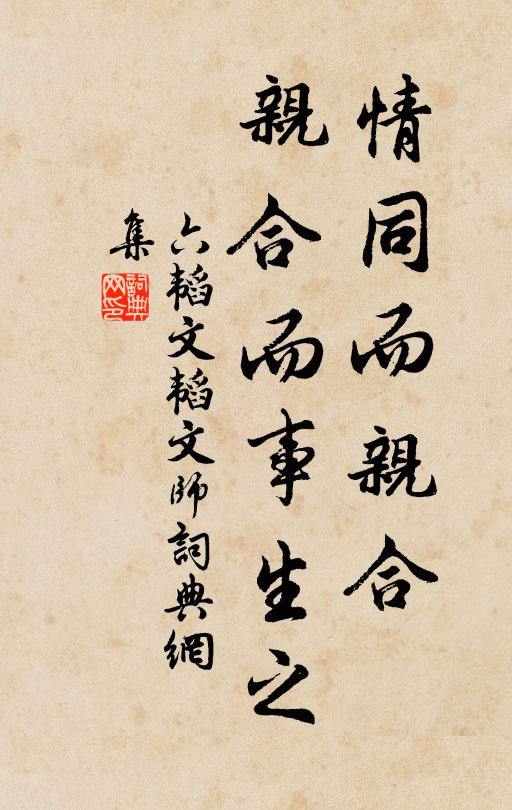 情同而親合
親合而事生之
六韬文韬文師詞典網
集
詞典
网印